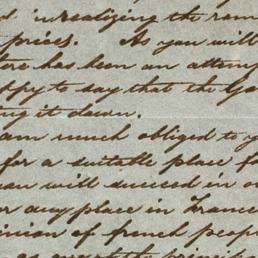 d in realizing the rem
prices. As you will
there has been an attemp
ppy to say that the Go
ing it down.
am much obliged to y
for a suitable place f
can will succeed in o
or any place in France
inion of french peop